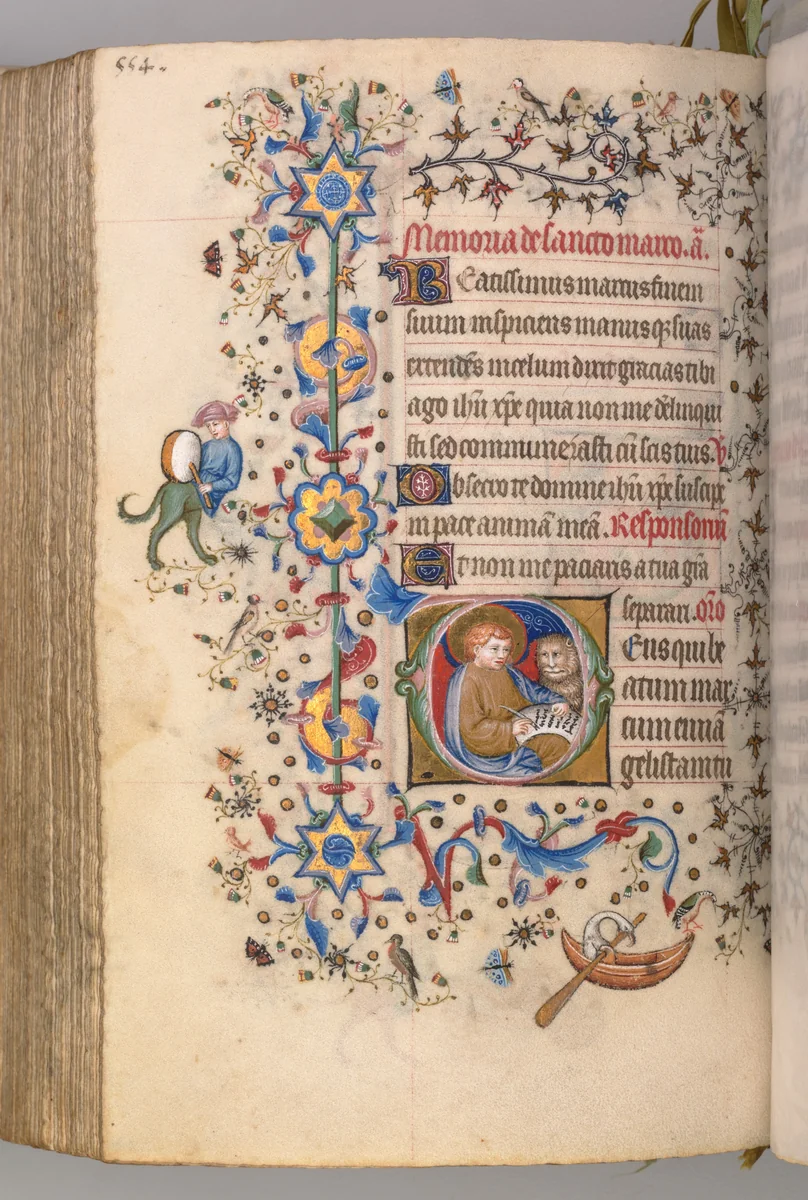 554.
Memoria de sancto marco. a̅.
Beatissimus marcus finem
suum inspiciens manus qȝ suas
extende̅s in celum dixit gracias tibi
ago ihu̅ xp̅e quia non me d̅eliqui
sti sed commune̅rasti cu̅ sc̅is tuis. v̅
Obsecro te domine ihu̅ xp̅e suscipe
in pace anima̅ mea̅. Responsoriu̅
Et non me paciaris a tua gr̅a
separari. or̅o
Eus qui be
atum mar
cum eua̅
gelistam tu